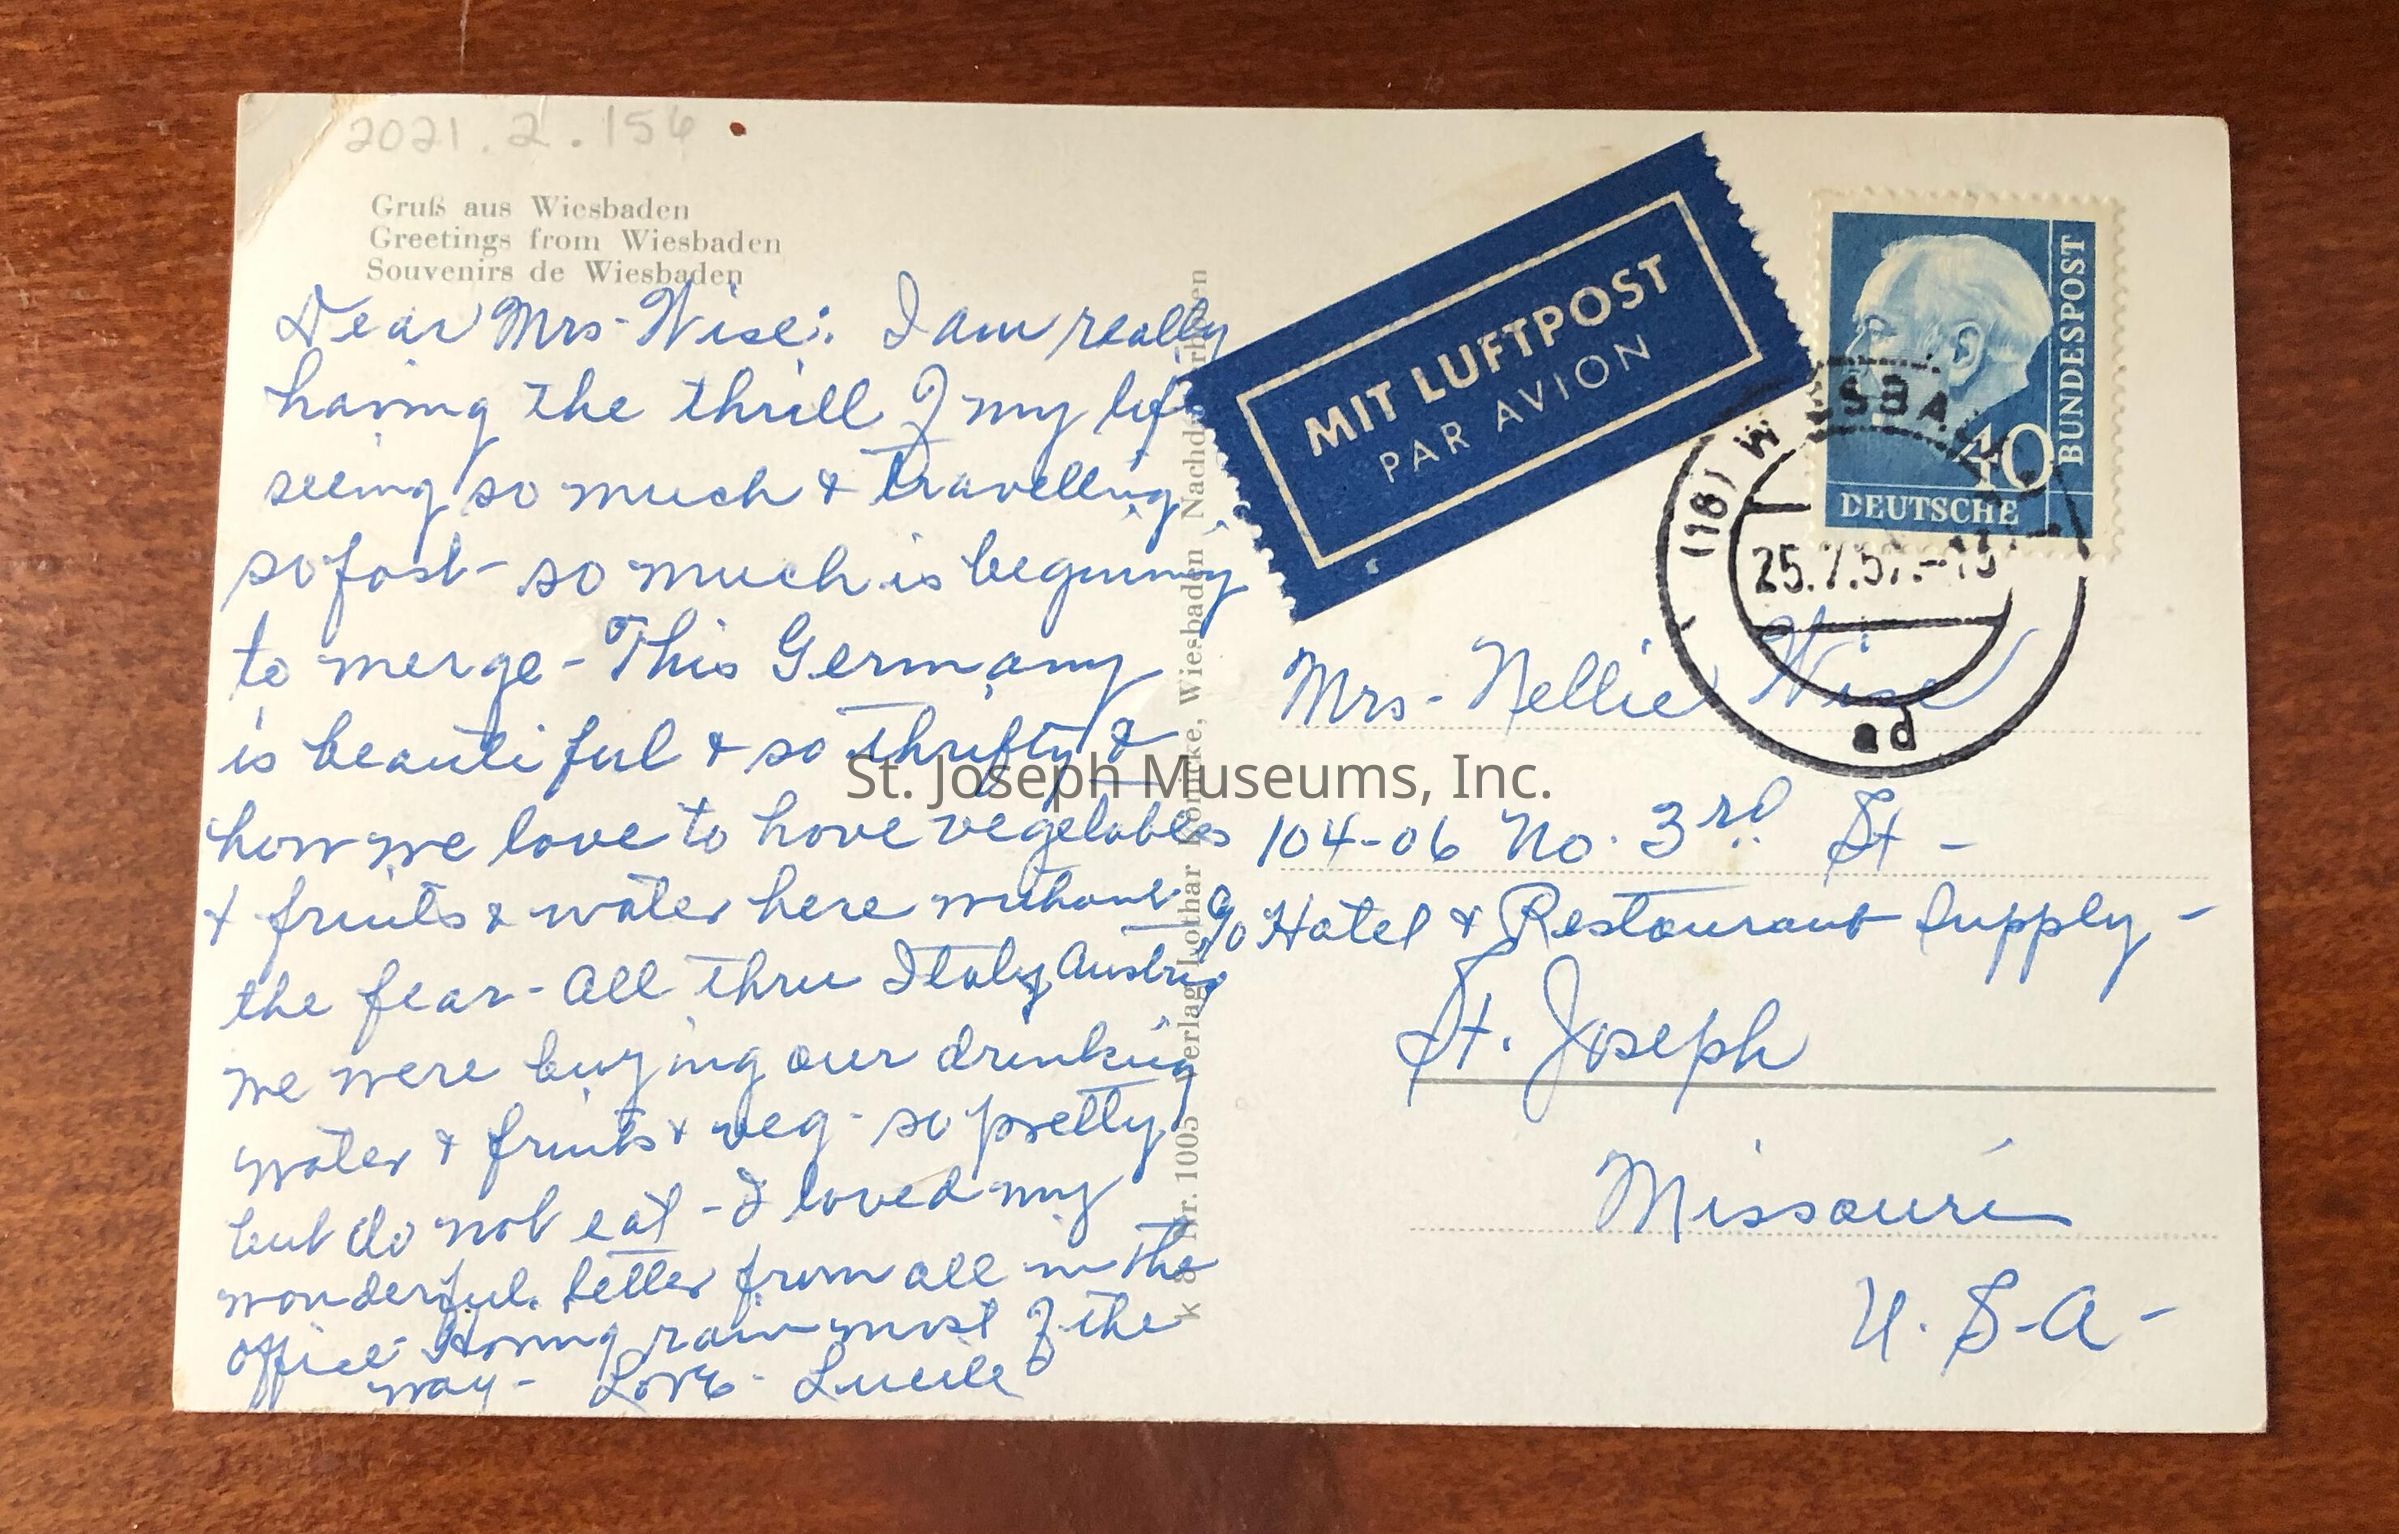 2021.2.156
Gruß aus Wiesbaden
Greetings from Wiesbaden
Souvenirs de Wiesbaden
Dear Mrs- Wise: I am really
having the thrill of my lif
seeing so much & travelling
so fast- so much is beginning
to merge- This Germany
is beautiful & so thrifty &
how we love to have vegetables
& fruits & water here without
the fear- All thru Italy, Austria
we were buying our drinking
water & fruits & veg- so pretty
but do not eat - I loved my
wonderful letter from all in the
office- Having rain most of the
way- Love- Lucile
k 8 Nr. 1005 Verlag Lothar Könicke, Wiesbaden Nachd
MIT LUFTPOST
PAR AVION
DEUTSCHE BUNDESPOST
40
(18) WIESBA
25.7.57.-
ad
Mrs- Nellie Wise
104-06 No. 3rd St-
c/o Hotel & Restaurant Supply-
St. Joseph
Missouri
U.S-A-
St. Joseph Museums, Inc.